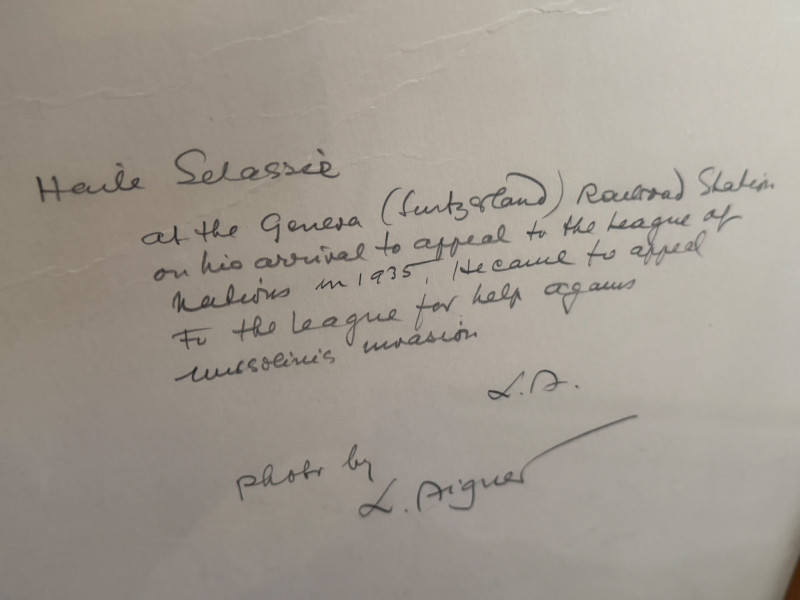 Haile Selassie
at the Geneva (Switzerland) Railroad Station
on his arrival to appeal to the League of
Nations in 1935. He came to appeal
To the League for help agains
Mussolinis invasion
L.A.
photo by
L. Aigner